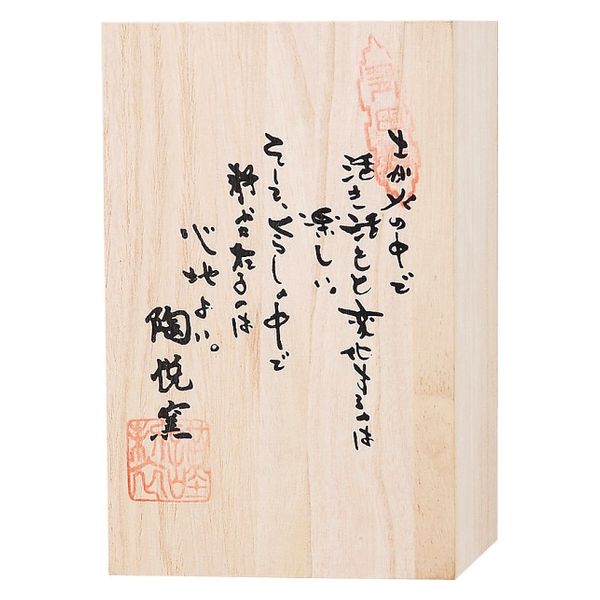 土が火の中で
活き活きと変化するのは
楽しい、
そして、くらしの中で
器が在るのは
心地よい。
陶悦窯